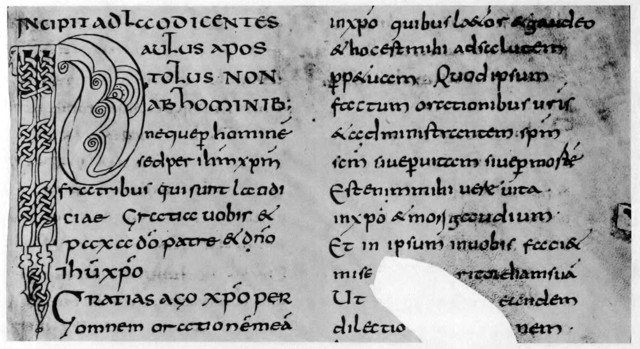 INCIPIT AD LAODICENTES
PAULUS APOS
TOLUS NON
AB HOMINIB;
neque ꝑ hominē
sed per ihm xpm
fratribus qui sunt laodi
ciae Gratia uobis &
pax a dō patre & dn̄o
ihū xpō
Gratias ago xp̄o per
omnem orationē meā
in xpō quibus la&or & gaudeo
& hoc est mihi ad salutem
ꝑp&uam Quod ipsum
factum orationibus uris
& administrantem spm̄
scm siue ꝑ uitam siue ꝑ mortē
Est enim mihi uere uita
in xpō & mori gaudium
Et in ipsum in uobis facia&
mise suā
Ut eandem
dilectio nem